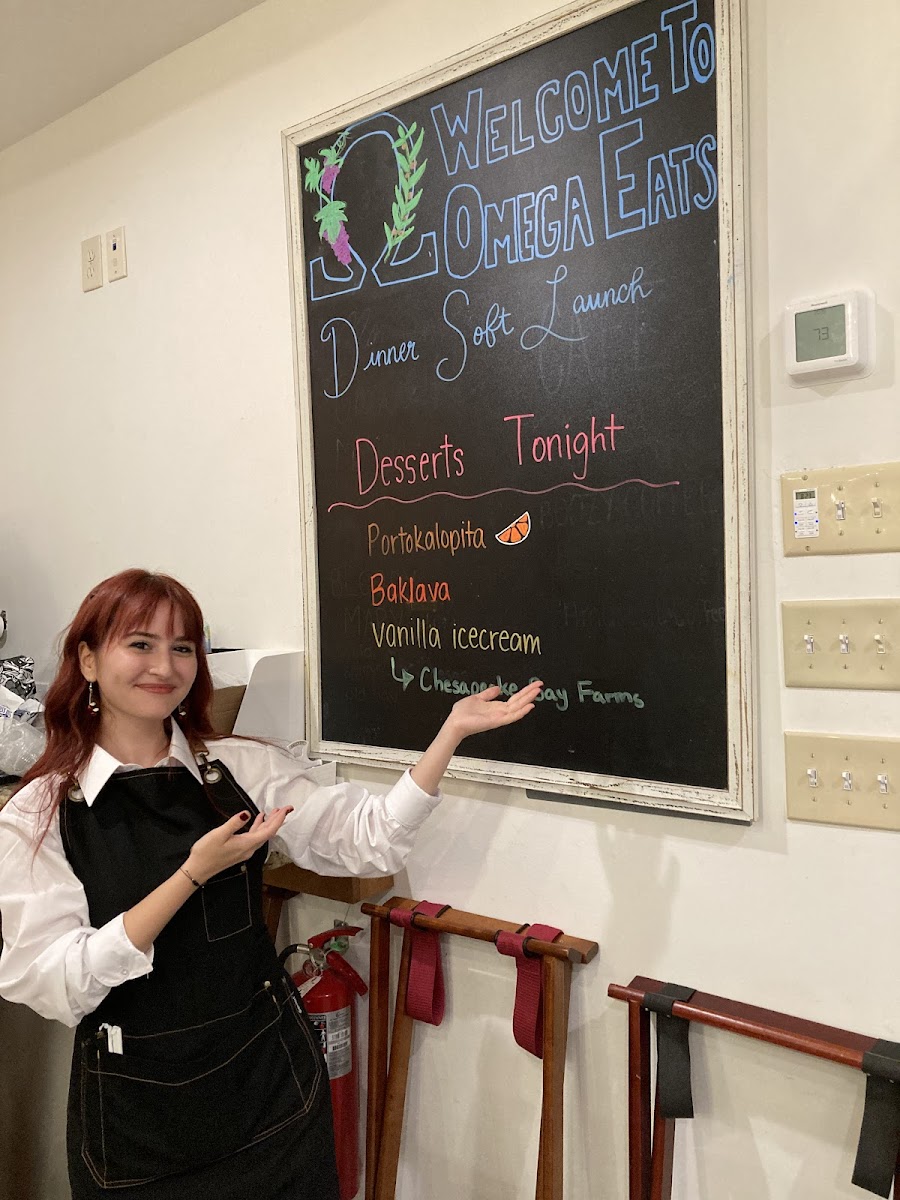 WELCOME TO
OMEGA EATS
Dinner Soft Launch
Desserts Tonight
Portokalopita
Baklava
Vanilla icecream
Chesapeake Bay Farms
Honeywell
73